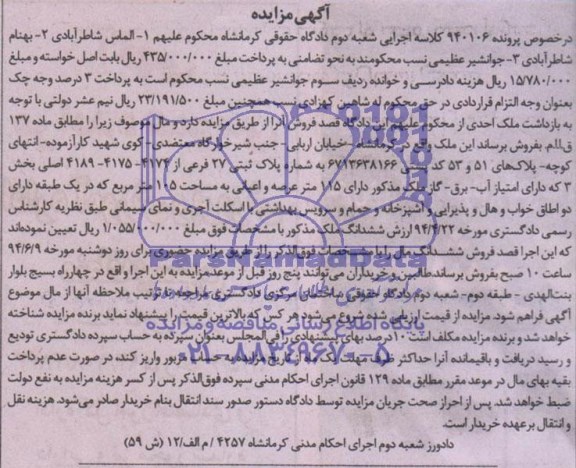 آگهی مزایده
درخصوص پرونده ۹۴۰۱۰۶ کلاسه اجرایی شعبه دوم دادگاه حقوقی کرمانشاه محکوم علیهم ۱- الماس شاطرآبادی ۲- بهنام
شاطرآبادی ۳- جوانشیر عظیمی نسب محکومند به نحو تضامنی به پرداخت مبلغ ۴۳۵/۰۰۰/۰۰۰ ریال بابت اصل خواسته و مبلغ
۱۵/۷۸۰/۰۰۰ ریال هزینه دادرسی و خوانده ردیف سوم جوانشیر عظیمی نسب محکوم است به پرداخت ۳ درصد وجه چک
بعنوان وجه التزام قراردادی در حق محکوم له شاهین کهزادی نسب همچنین مبلغ ۲۳/۱۹۱/۵۰۰ ریال نیم عشر دولتی با توجه
به بازداشت ملک احدی از محکوم علیهم این دادگاه قصد فروش آنرا از طریق مزایده دارد و مال موصوف زیر را مطابق ماده ۱۳۷
ق.ا.ا.م بفروش برساند این ملک واقع در کرمانشاه - خیابان اربابی - جنب شیرخوارگاه معتضدی - کوی شهید کارآزموده - انتهای
کوچه - پلاک‌های ۵۱ و ۵۳ کد پستی ۶۷۱۳۶۳۸۱۶۶ به شماره پلاک ثبتی ۲۷ فرعی از ۴۱۷۴ - ۴۱۷۵ - ۴۱۸۹ اصلی بخش
۳ که دارای امتیاز آب - برق - گاز ملک مذکور دارای ۱۱۵ متر عرصه و اعیانی به مساحت ۱۰۵ متر مربع که در یک طبقه دارای
دو اطاق خواب و هال و پذیرایی و آشپزخانه و حمام و سرویس بهداشتی با اسکلت آجری و نمای سیمانی طبق نظریه کارشناس
رسمی دادگستری مورخه ۹۴/۴/۲۲ ارزش ششدانگ ملک مذکور با مشخصات فوق مبلغ ۱/۰۵۵/۰۰۰/۰۰۰ ریال تعیین نموده‌اند
که این اجرا قصد فروش ششدانگ مال را با مشخصات فوق‌الذکر را از طریق مزایده حضوری برای روز دوشنبه مورخه ۹۴/۶/۹
ساعت ۱۰ صبح بفروش برساند طالبین و خریداران می‌توانند پنج روز قبل از موعد مزایده به این اجرا واقع در چهارراه بسیج بلوار
بنت‌الهدی - طبقه دوم - شعبه دوم دادگاه حقوقی ساختمان مرکزی دادگستری مراجعه تا ترتیب ملاحظه آنها از مال موضوع
آگهی فراهم شود. مزایده از قیمت ارزیابی شده شروع می‌شود هر کس که بالاترین قیمت را پیشنهاد نماید برنده مزایده شناخته
خواهد شد و برنده مزایده مکلف است ۱۰ درصد بهای پیشنهادی را فی‌المجلس بعنوان سپرده به حساب سپرده دادگستری تودیع
و رسید دریافت و باقیمانده آنرا حداکثر ظرف مهلت یک ماه از تاریخ مزایده به حساب مزبور واریز کند، در صورت عدم پرداخت
بقیه بهای مال در موعد مقرر مطابق ماده ۱۲۹ قانون اجرای احکام مدنی سپرده فوق‌الذکر پس از کسر هزینه مزایده به نفع دولت
ضبط خواهد شد. پس از احراز صحت جریان مزایده توسط دادگاه دستور صدور سند انتقال بنام خریدار صادر می‌شود. هزینه نقل
و انتقال بر عهده خریدار است.
دادورز شعبه دوم اجرای احکام مدنی کرمانشاه ۴۲۵۷ / م الف/۱۲ (ش ۵۹)
ParsNamadData
پایگاه اطلاع رسانی مناقصه و مزایده
۰۲۱-۸۸۳۴۹۶۷۰-۵